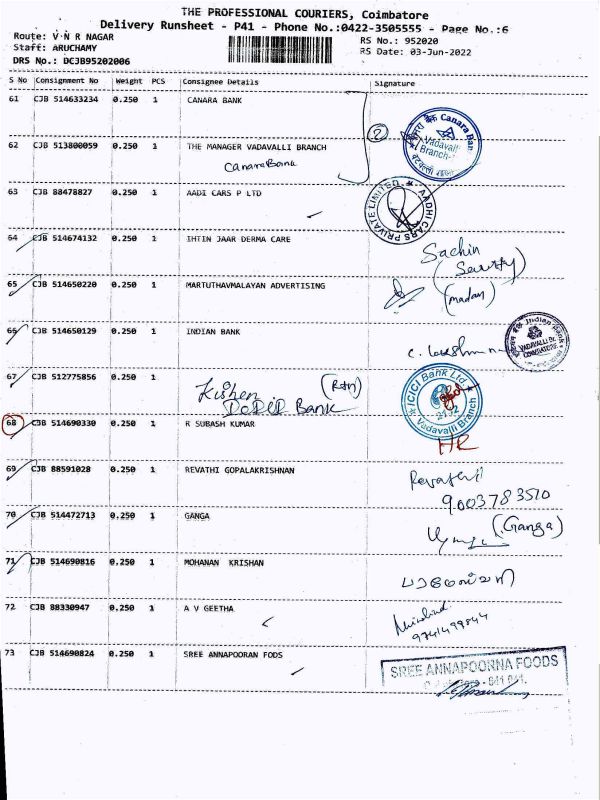 THE PROFESSIONAL COURIERS, Coimbatore
Delivery Runsheet - P41 - Phone No.:0422-3505555 - Page No.:6
Route: V N R NAGAR
RS No.: 952020
Staff: ARUCHAMY
RS Date: 03-Jun-2022
DRS No.: DCJB95202006
S No Consignment No Weight PCS Consignee Details Signature
61 CJB 514633234 0.250 1 CANARA BANK
2
Canara Bank
Vadavalli
Branch
62 CJB 513800059 0.250 1 THE MANAGER VADAVALLI BRANCH
Canara Bank
63 CJB 88478827 0.250 1 AADI CARS P LTD
AADHI CARS PRIVATE LIMITED
64 CJB 514674132 0.250 1 IHTIN JAAR DERMA CARE
Sachin
(Security)
65 CJB 514650220 0.250 1 MARTUTHAVMALAYAN ADVERTISING
(madan)
66 CJB 514650129 0.250 1 INDIAN BANK
Indian Bank
VADAVALLI Br.
COIMBATORE
67 CJB 512775856 0.250 1
Kishen (Rtn)
Bank
ICICI Bank Ltd.
2172
Vadavalli Branch
68 CJB 514690330 0.250 1 R SUBASH KUMAR
HR
69 CJB 88591028 0.250 1 REVATHI GOPALAKRISHNAN
Revathi
9003783510
70 CJB 514472713 0.250 1 GANGA
(Ganga)
71 CJB 514690816 0.250 1 MOHANAN KRISHAN
72 CJB 88330947 0.250 1 A V GEETHA
9741499844
73 CJB 514690824 0.250 1 SREE ANNAPOORAN FODS
SREE ANNAPOORNA FOODS
641 041.